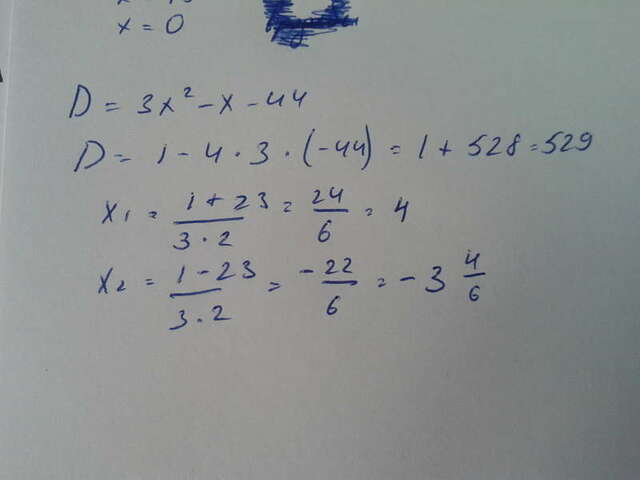 x = 0
D = 3x² - x - 44
D = 1 - 4 · 3 · (-44) = 1 + 528 = 529
x₁ = (1 + 23)/(3 · 2) = 24/6 = 4
x₂ = (1 - 23)/(3 · 2) = -22/6 = -3 4/6